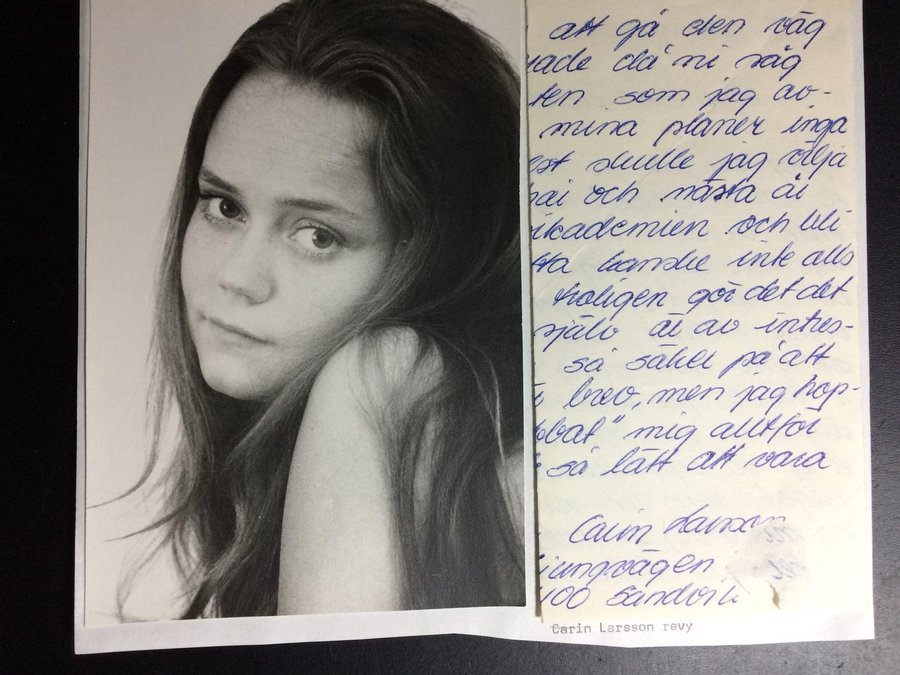 att gå den väg
ade då ni såg
ten som jag av-
mina planer inga
st skulle jag vilja
och nästa år
akademien och bli
ta kanske inte alls
troligen gör det det
själv är av intres-
så säker på att
brev, men jag hop-
bat" mig alltför
så lätt att vara
Carin Larsson
jungvägen
400 Sandvik
Carin Larsson revy